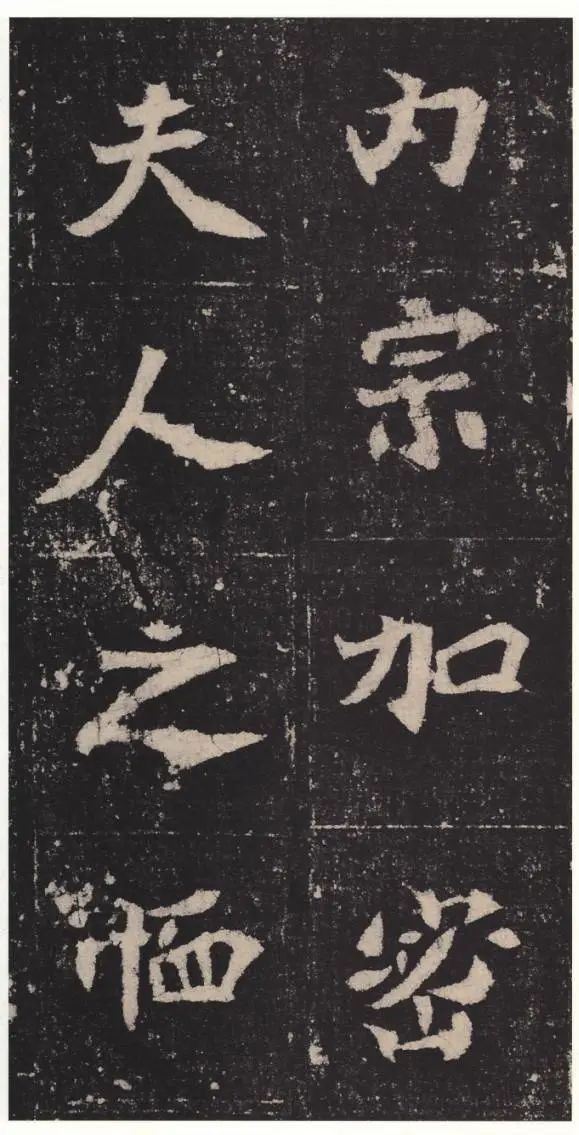 内宗加密
夫人之恤